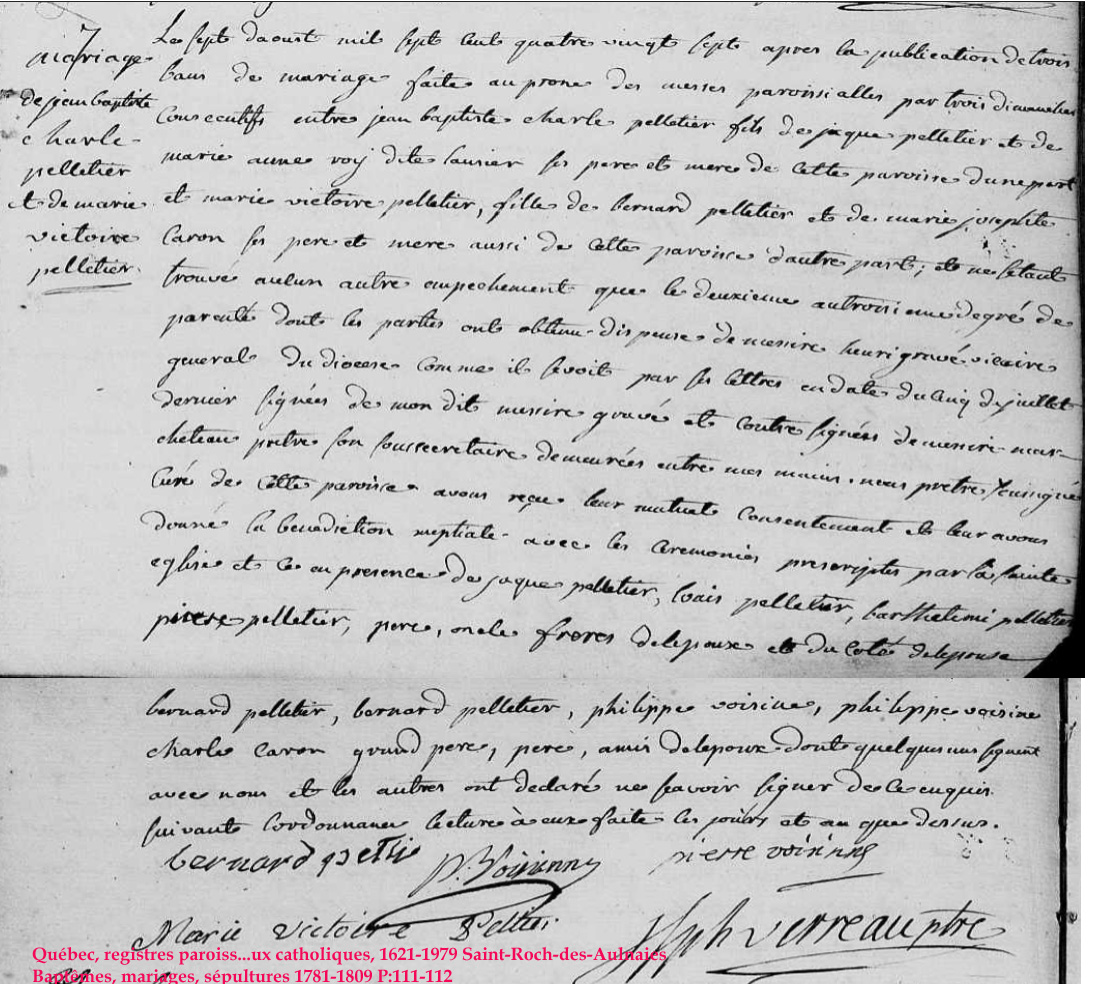 7
mariage
de jean baptiste
charle
pelletier
et de marie
victoire
pelletier
Le sept daoust mil sept cent quatre vingt sept apres la publication de trois
bans de mariage faite au prone des messes paroissialles par trois dimanches
Consecutifs entre jean baptiste charle pelletier fils de jaque pelletier et de
marie anne roy dite lausier ses pere et mere de cette paroisse dune part
et marie victoire pelletier, fille de bernard pelletier et de marie josephte
Caron ses pere et mere aussi de cette paroisse dautre part; et ne setant
trouvé aucun autre empechement que le deuxieme au troisieme degré de
parenté dont les parties ont obtenu dispense de messire henri gravé vicaire
general du diocese comme il se voit par ses lettres en date du cinq de juillet
dernier signées de mon dit messire gravé et contre signées de messire mar-
cheteau pretre son soussecretaire demeurées entre mes mains. nous pretre soussigné
Curé de cette paroisse avons reçu leur mutuel Consentement et leur avons
donné la benediction nuptiale avec les ceremonies prescriptes par la sainte
eglise et ce en presence de jaque pelletier, louis pelletier, barthelemi pelletier
pierre pelletier, pere, oncle freres delepoux et du coté delepouse
bernard pelletier, bernard pelletier, philippe voisine, philippe voisine
charle Caron grand pere, pere, amis delepoux dont quelques uns signent
avec nous et les autres ont declaré ne scavoir signer de ce enquis
suivant lordonnance lecture à eux faite les jours et an que dessus.
bernard peltié
P. Voisinne
pierre voisinne
Marie victoire Peltier
Jsph verreau ptre
Québec, registres paroiss...ux catholiques, 1621-1979 Saint-Roch-des-Aulnaies
Baptêmes, mariages, sépultures 1781-1809 P:111-112